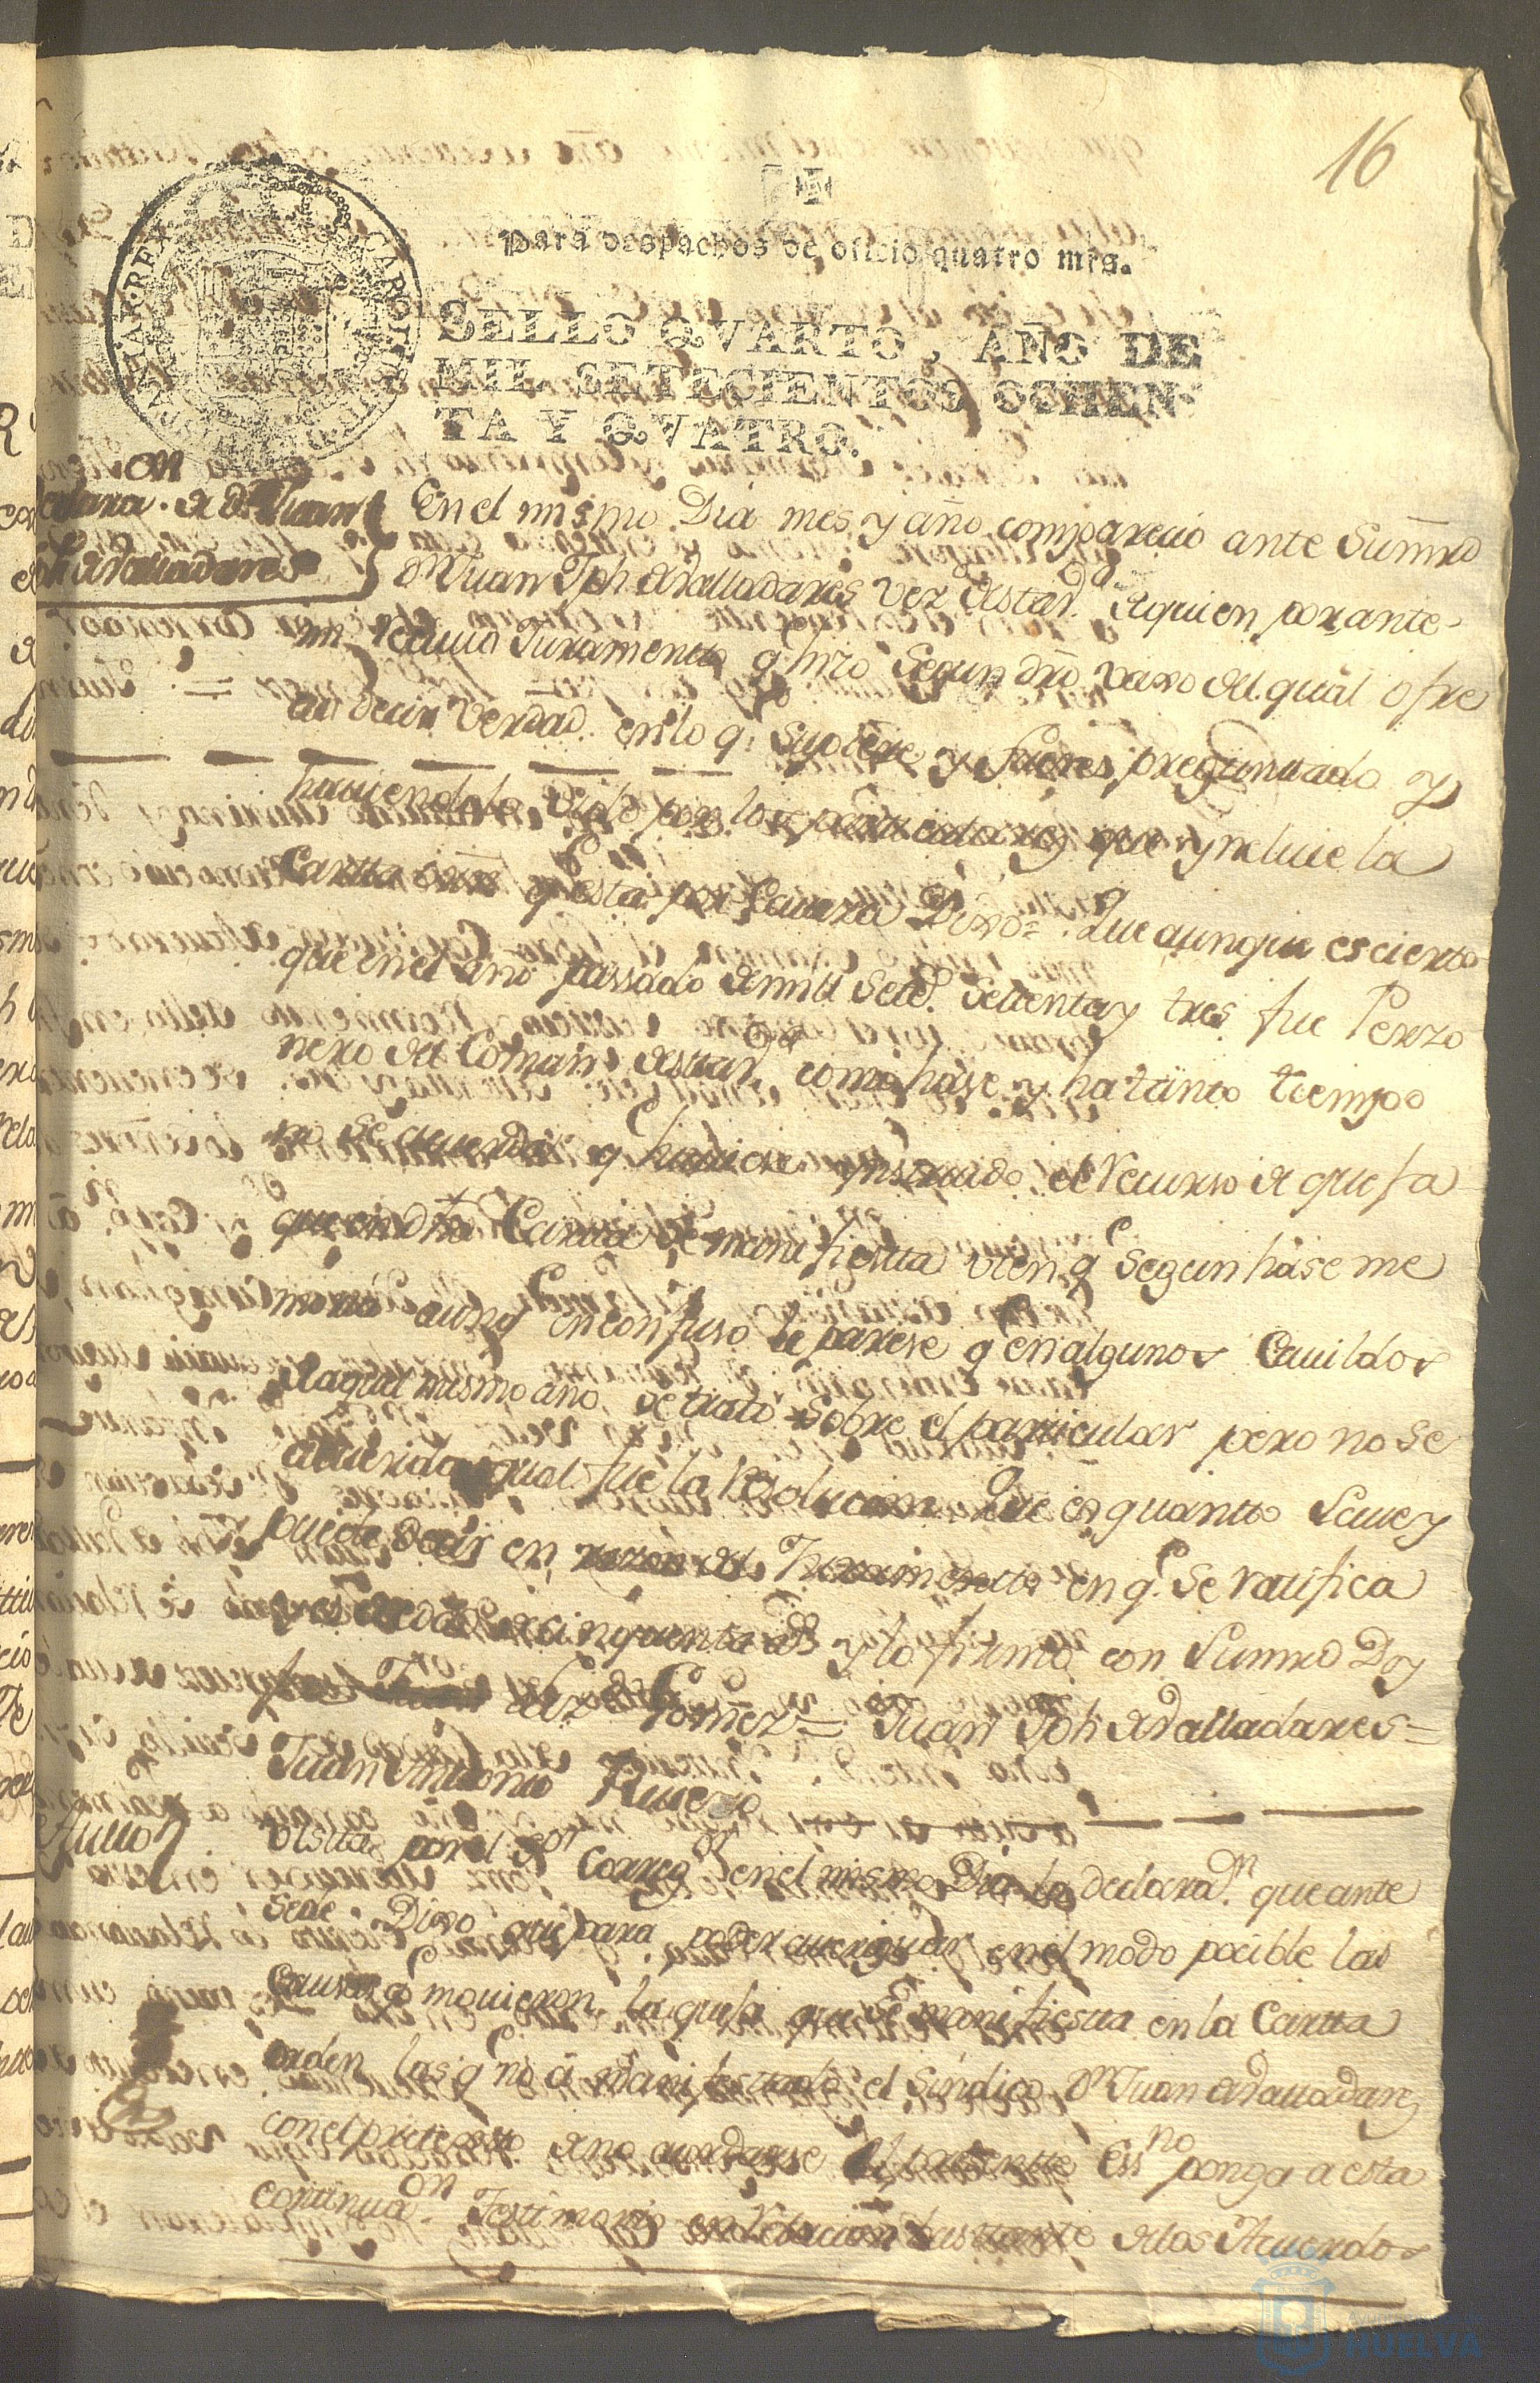 16
Para despachos de oficio quatro mrs.
SELLO QVARTO, AÑO DE
MIL SETECIENTOS OCHEN-
TA Y QVATRO.
CAROL
Declara.on de Dn Juan
Jph de Valladares
En el mismo Dia mes y año comparecio ante Sumrd
Dn Juan Jph de Valladares vezo destta Va. de quien por ante
mi recivio Juramento q.e hizo segun dro vaxo del qual ofre
cio decir verdad en lo q.e supiere y fuere preguntado y
haviendolo sido por los particulares que ynclue la
Cartta orn q.e esta por Caveza Dixo= Que aunque es cierto
que en el año passado de mill Setes. Settenta y tres fue Perzo
nero del Comun desta Va. como hase y ha tanto tiempo
no se acuerda q.e huviese ynstruido el Recurso de quexa
que en dha Cartta se manifiesta vien q.e segun hase me
moria aunq.e en confuso le parese q.e en algunos Cavildos
de aquel mismo año se trato sobre el particular pero no se
acuerda qual fue la Resolucion. Que es quantto save y
puede decir en razon del Juramento en q.e se ratifica
es de edad de cinquenta as. y lo firmo con Sumrd Doy
fee = Lizdo Gomez = Juan Jph de Valladares =
Juan Antonio Rivero
Autto
Vista por el Sor Corregor en el mismo Dia la declaran. que ante
sede Dixo que para poder averiguar en el modo pocible las
Causas q.e movieron la quexa que se manifiesta en la Cartta
orden las q.e no á manifestado el Síndico Dn Juan de Valladares
con el pretexto de no acordarse El presentte Essno ponga a esta
continuaon. Testimonio en relacion bastante de los Acuerdos
HUELVA